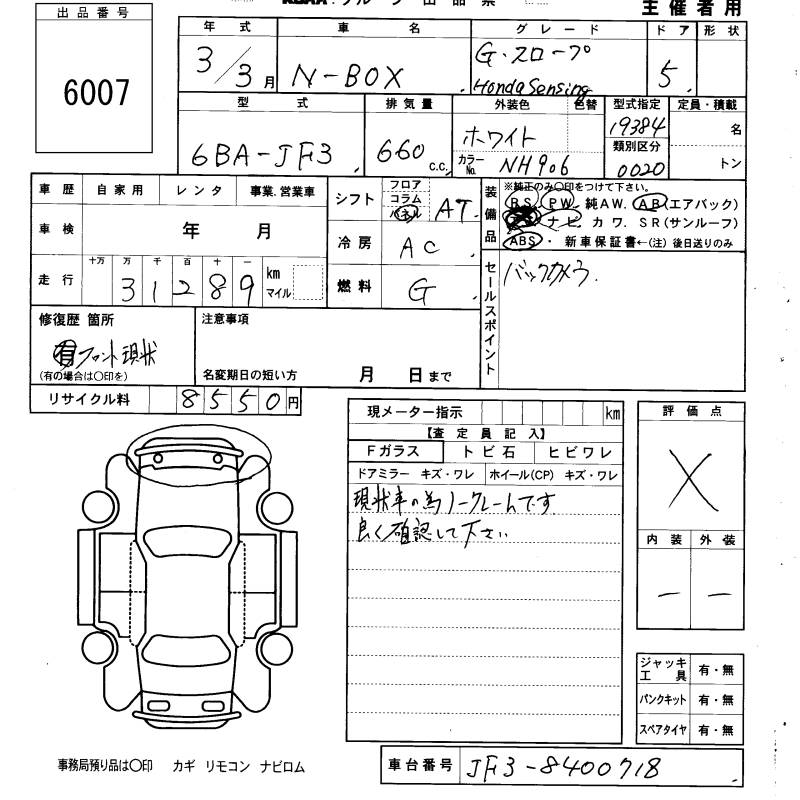 出品番号
6007
主催者用
年式
3/3月
車名
N-BOX
グレード
G・スロープ
Honda Sensing
ドア 形状
5
型式
6BA-JF3
排気量
660 c.c.
外装色 色替
ホワイト
カラーNo. NH906
型式指定
19384
類別区分
0020
定員・積載
名
トン
車歴 自家用 レンタ 事業.営業車
車検 年 月
走行 十万 万 千 百 十 一
31289 km マイル
シフト フロア コラム パネル AT
冷房 AC
燃料 G
装備品
※純正のみ〇印をつけて下さい。
P.S. P.W. 純A.W. A.B(エアバック)
ナビ カワ S.R(サンルーフ)
ABS・新車保証書←(注)後日送りのみ
セールスポイント
バックカメラ.
修復歴 箇所
有 フロント現状
(有の場合は〇印を)
注意事項
名変期日の短い方 月 日まで
リサイクル料 8550円
現メーター指示 km
【査定員記入】
Fガラス トビ石 ヒビワレ
ドアミラー キズ・ワレ ホイール(CP) キズ・ワレ
現状車の為ノークレームです
良く確認して下さい
評価点
X
内装 外装
― ―
ジャッキ工具 有・無
パンクキット 有・無
スペアタイヤ 有・無
事務局預り品は〇印 カギ リモコン ナビロム
車台番号 JF3-8400718